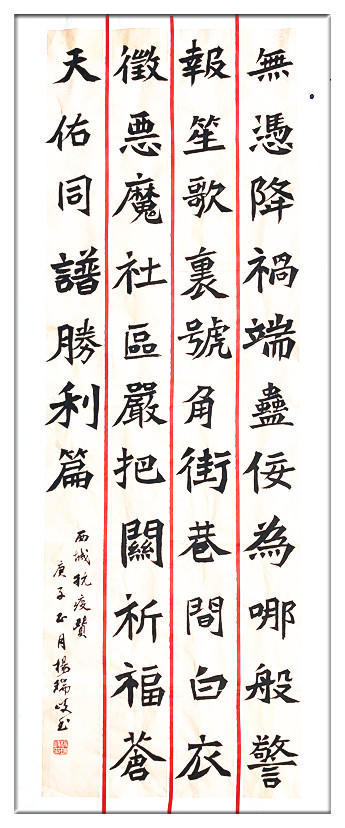 無憑降禍端蠱佞為哪般警
報笙歌裏號角街巷間白衣
徵悪魔社區嚴把關祈福蒼
天佑同譜勝利篇
西城抗疫贊
庚子正月楊瑞岐书